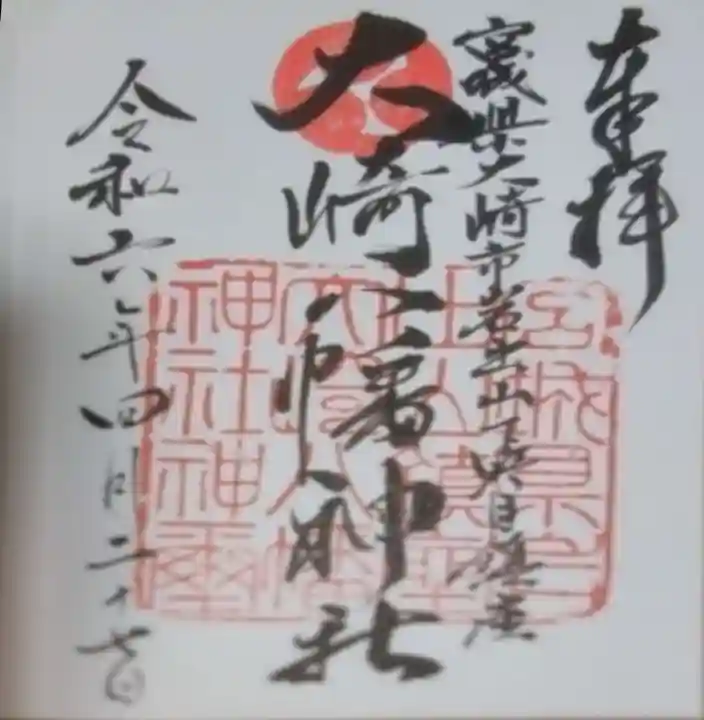 奉拝
宮城県大崎市岩出山下真目鎮座
大崎八幡神社
令和六年四月二十七日